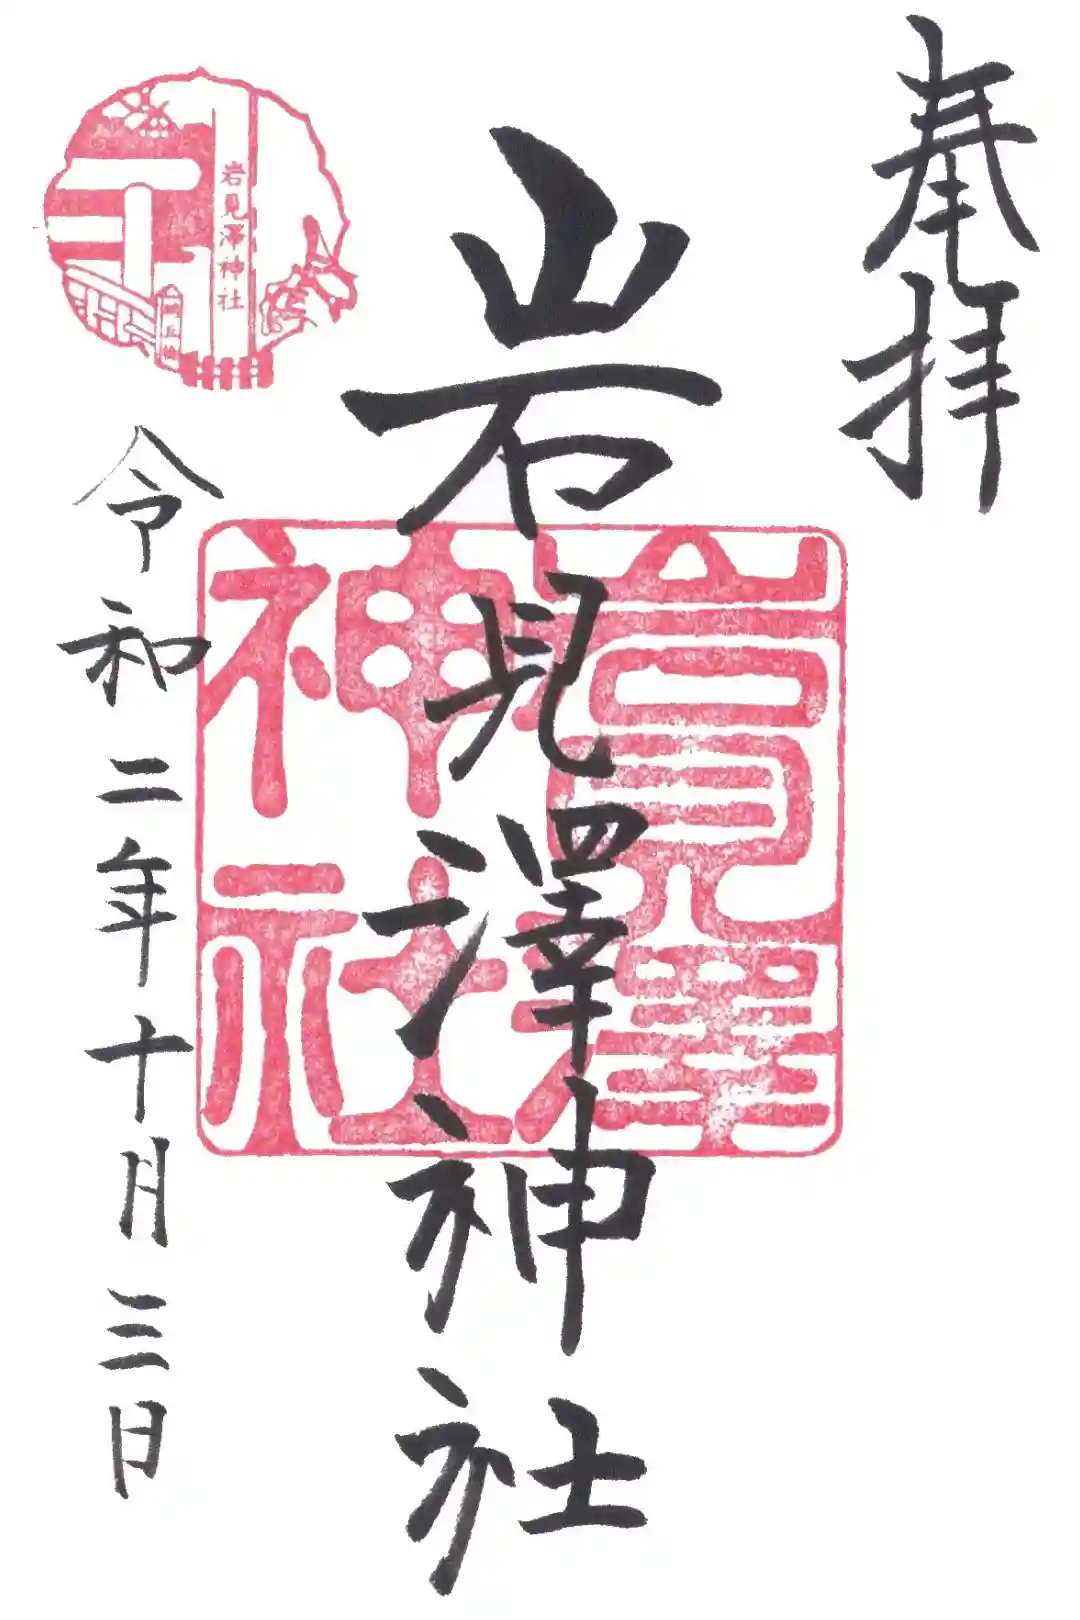 奉拝
岩見澤神社
岩見澤神社
岩見澤神社
令和二年十月三日